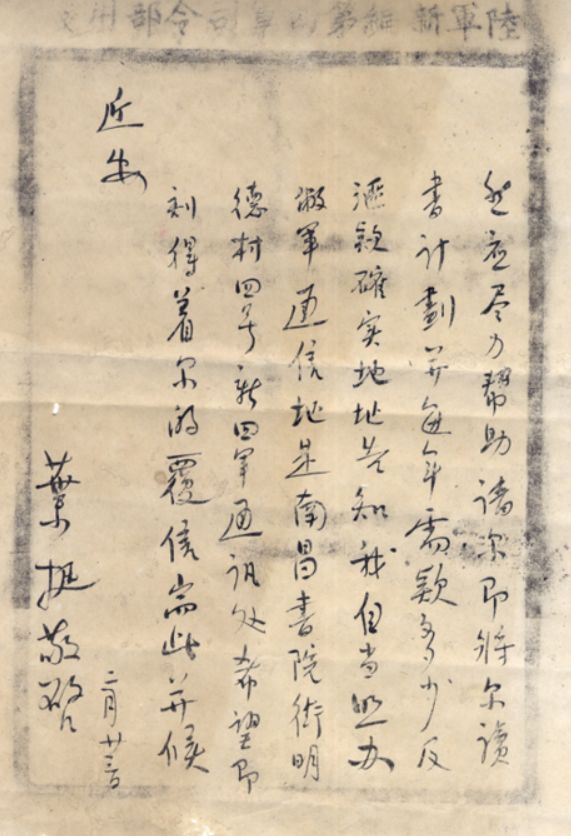 陸軍新編第四軍司令部用箋
然應尽力幫助請尔即將尔讀
書計劃并每年需欵多少及
滙欵確实地址告知我自当照办
敝軍通信地址是南昌書院街明
德村四号新四軍通訊处希望即
刻得着尔的覆信耑此并候
近安
葉挺敬啓
二月廿三日